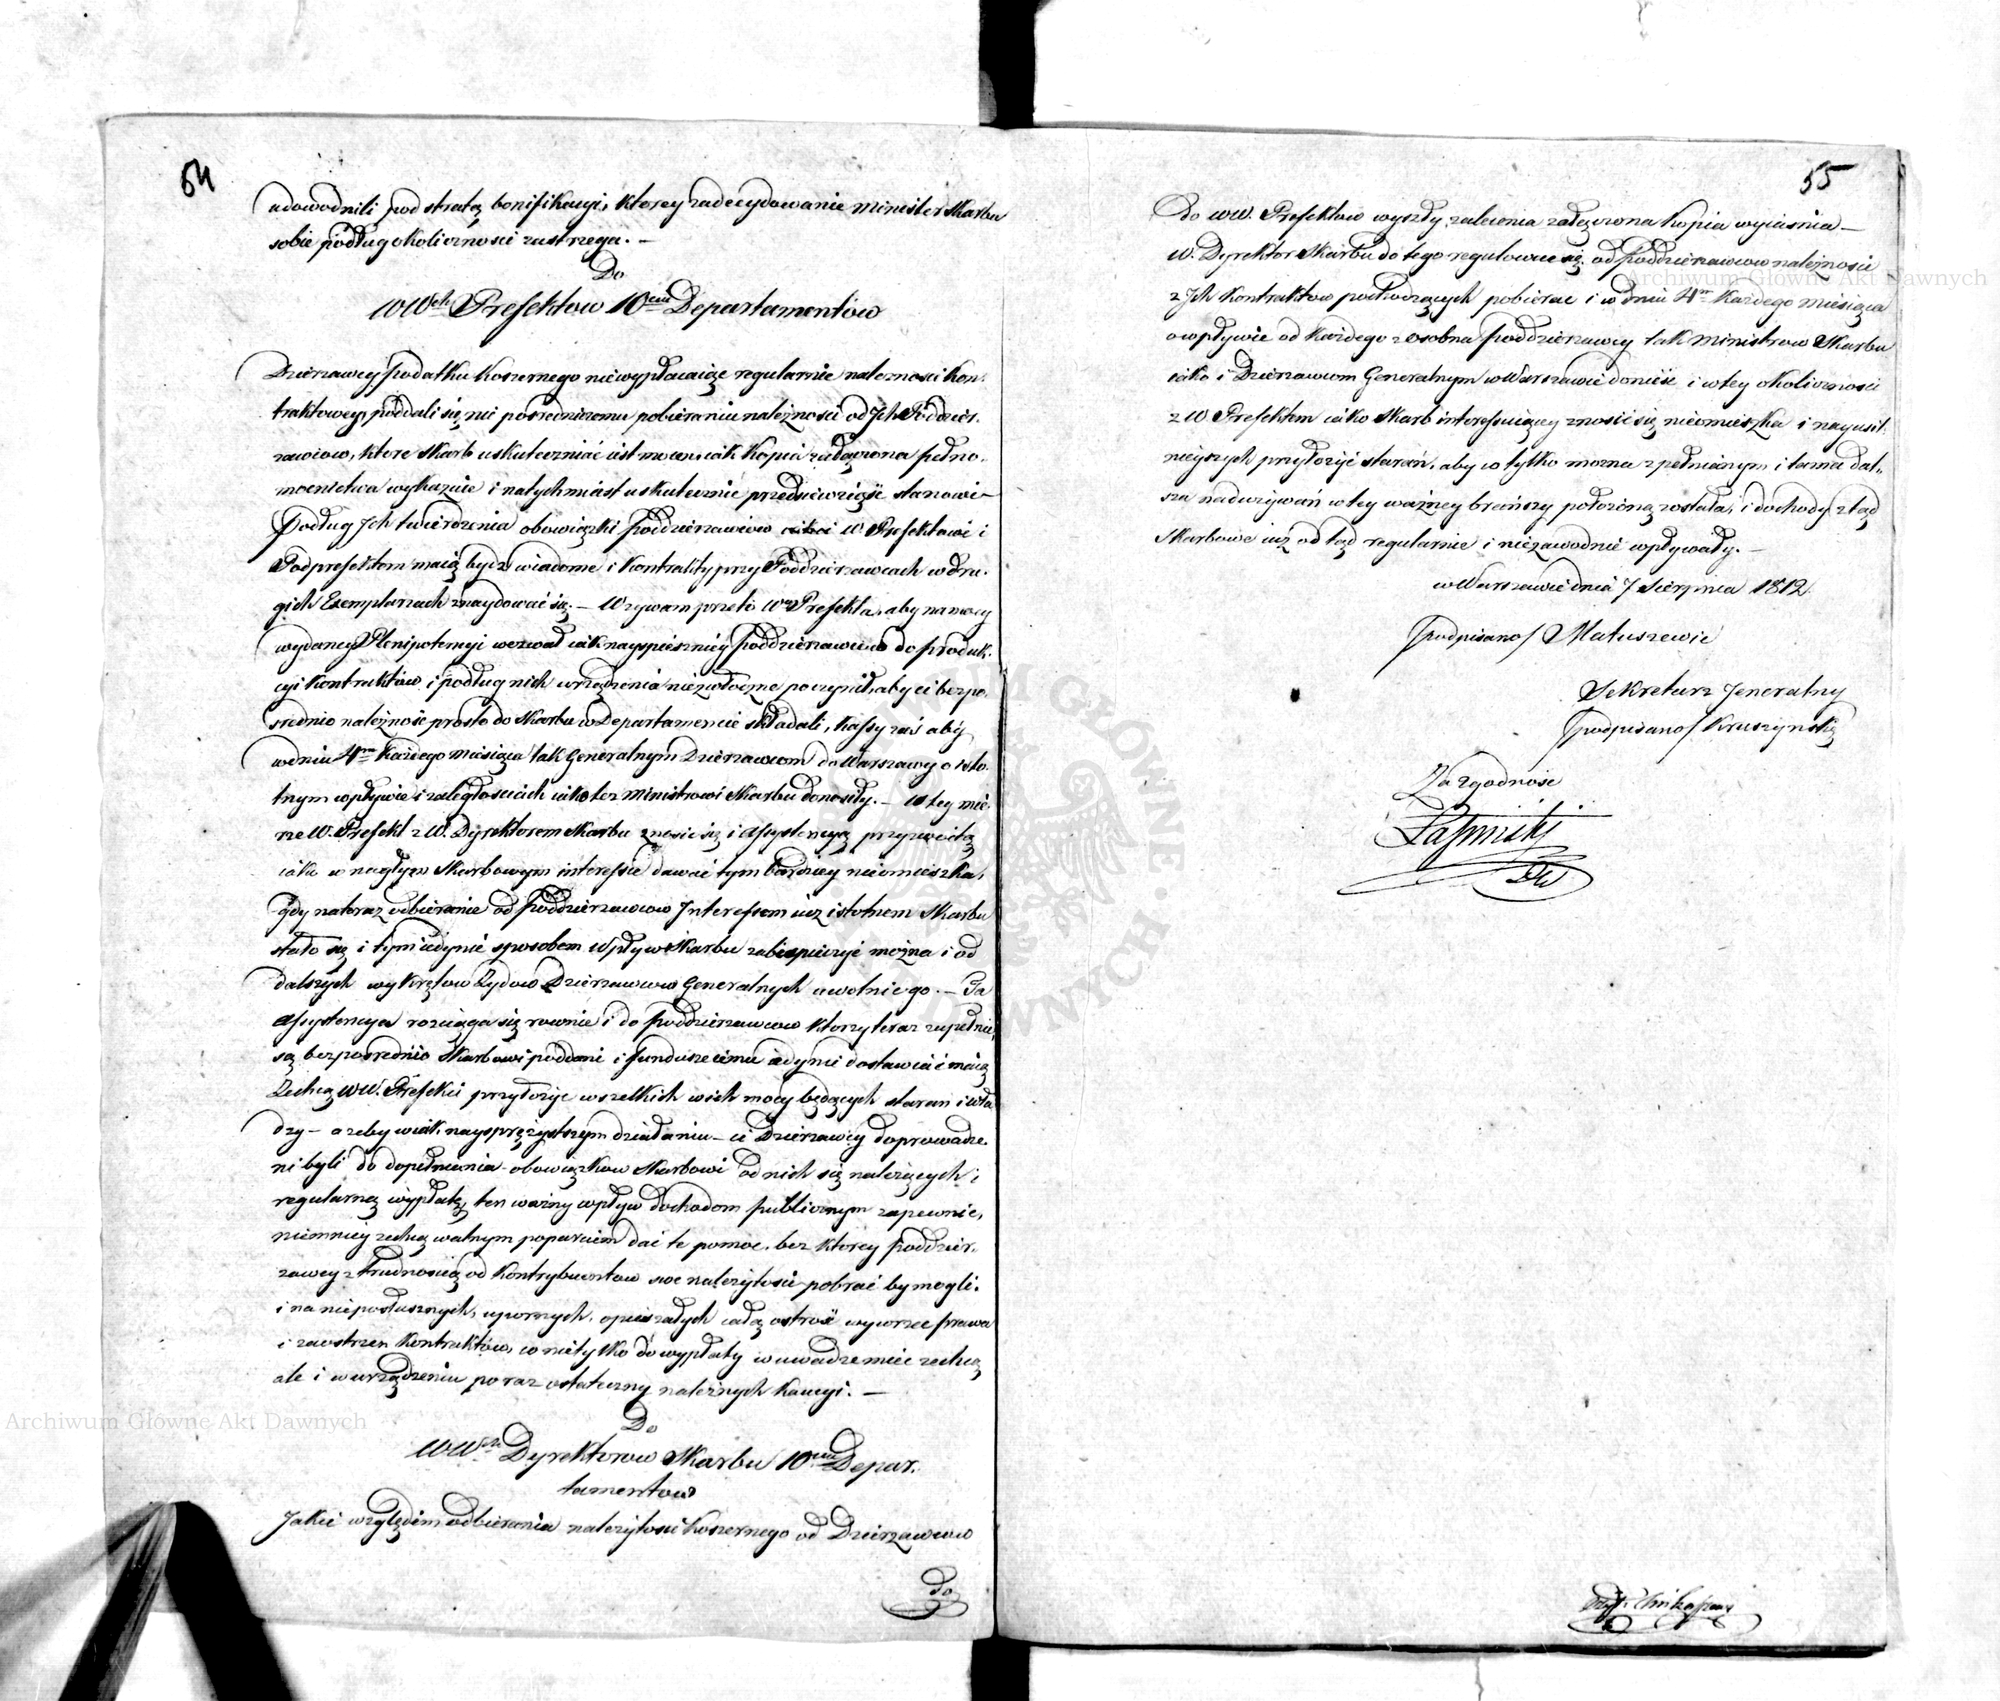 54
udowodnili pod stratą bonifikacyi, ktorey zadecydowanie Minister Skarbu
sobie podług okoliczności zastrzega. —
Do
WWch Prefektow 10ciu Departamentów
Dzierzawcy Podatku Koszernego niewypłacaiąc regularnie należnosci kon-
traktowey, poddali się pośredniczemu pobieraniu należnosci od Jch Poddzier-
zawcow, ktore Skarb uskuteczniać iest mocen, iak Kopia załączona pełno-
mocnictwa wykazuie i natychmiast uskutecznić przedsięwzięcie stanowi —
Podług Jch twierdzenia obowiązki Poddzierzawcow W Prefektowi i
Podprefektom maią bydź wiadome i Kontrakty przy Poddzierzawcach w dru-
gich Exemplarzach znaydować się. — Wzywam przeto Wo Prefekta, aby na mocy
wydaney Plenipotencyi wezwał iak nayspieszniey Poddzierzawcow do produk-
cyi Kontraktów i podług nich urządzenia niezwłoczne poczynił, aby ci bezpo-
srednio należność prosto do Skarbu w Departamencie składali, Kassy zaś aby
w dniu 4m Każdego Miesiąca tak Generalnym Dzierzawcom do Warszawy o isto-
tnym wpływie i zaległościach iako tez Ministrowi Skarbu donosiły. — W tey mie-
rze W. Prefekt z W. Dyrektorem Skarbu znosić się i Assystencyą przyzwoitą
iako w nagłym Skarbowym interessie dawać tym bardziey nieomieszka,
gdy na teraz odbieranie od Poddzierzawcow Interessem iuz istotnem Skarbu
stało się i tym iedynie sposobem Wpływ Skarbu zabespieczyć można i od
dalszych wykrętow Żydow Dzierzawcow Generalnych uwolnić go. — Ta
Assystencya rozciąga się rownie i do Poddzierzawcow ktorzy teraz zupełnie
są bezposrednio Skarbowi poddani i fundusze iemu iedynie dostawiać maią
Zechcą WW. Prefekci przyłożyć wszelkich w ich mocy będących staran i wła-
dzy — azeby w iak naysprężystszym działaniu — ci Dzierzawcy doprowadze-
ni byli do dopełnienia obowiązkow Skarbowi od nich się nalezących i
regularną wypłatę, ten ważny wpływ dochodom publicznym zapewnić,
niemniey zechcą walnym poparciem dać te pomoc, bez ktorey Poddzier-
zawcy z trudnością od Kontrybuentow swe należytosci pobrać by mogli,
i na nieposłusznych, upornych, opieszałych całą ostrość wywrzec prawa
i zaostrzen Kontraktów, co nietylko do wypłaty w uwadze mieć zechcą
ale i w urządzeniu po raz ostateczny należnych Kaucyi. —
Do
WWch Dyrektorow Skarbu 10ciu Depar-
tamentow
Jakie względem odbierania należytosci Koszernego od Dzierzawcow
do
55
do WW. Prefektow wyszły zalecenia załączona Kopia wyiasnia —
W. Dyrektor Skarbu do tego regulowac się, od Poddzierzawcow należnosci
z Jch Kontraktow pochodzących pobierac i w dniu 4m Każdego Miesiąca
o wpływie od każdego z osobna Poddzierzawcy tak Ministrow Skarbu
iako i Dzierzawcom Generalnym w Warszawie donieść i w tey okolicznosci
z W Prefektem iako Skarb interessuiącey znosić się nieomieszka i nayusil-
nieyszych przyłożyć starań, aby co tylko mozna zpełnianym i tama dal-
sza nadużywań w tey ważney brańszy położoną została, i dochody ztąd
Skarbowe iuż od tąd regularnie i niezawodnie wpływały. —
w Warszawie dnia 7 Sierpnia 1812
/podpisano/ Matuszewic
Sekretarz Jeneralny
/podpisano/ Kruszyński
Za zgodność
Archiwum Główne Akt Dawnych
Archiwum Główne Akt Dawnych